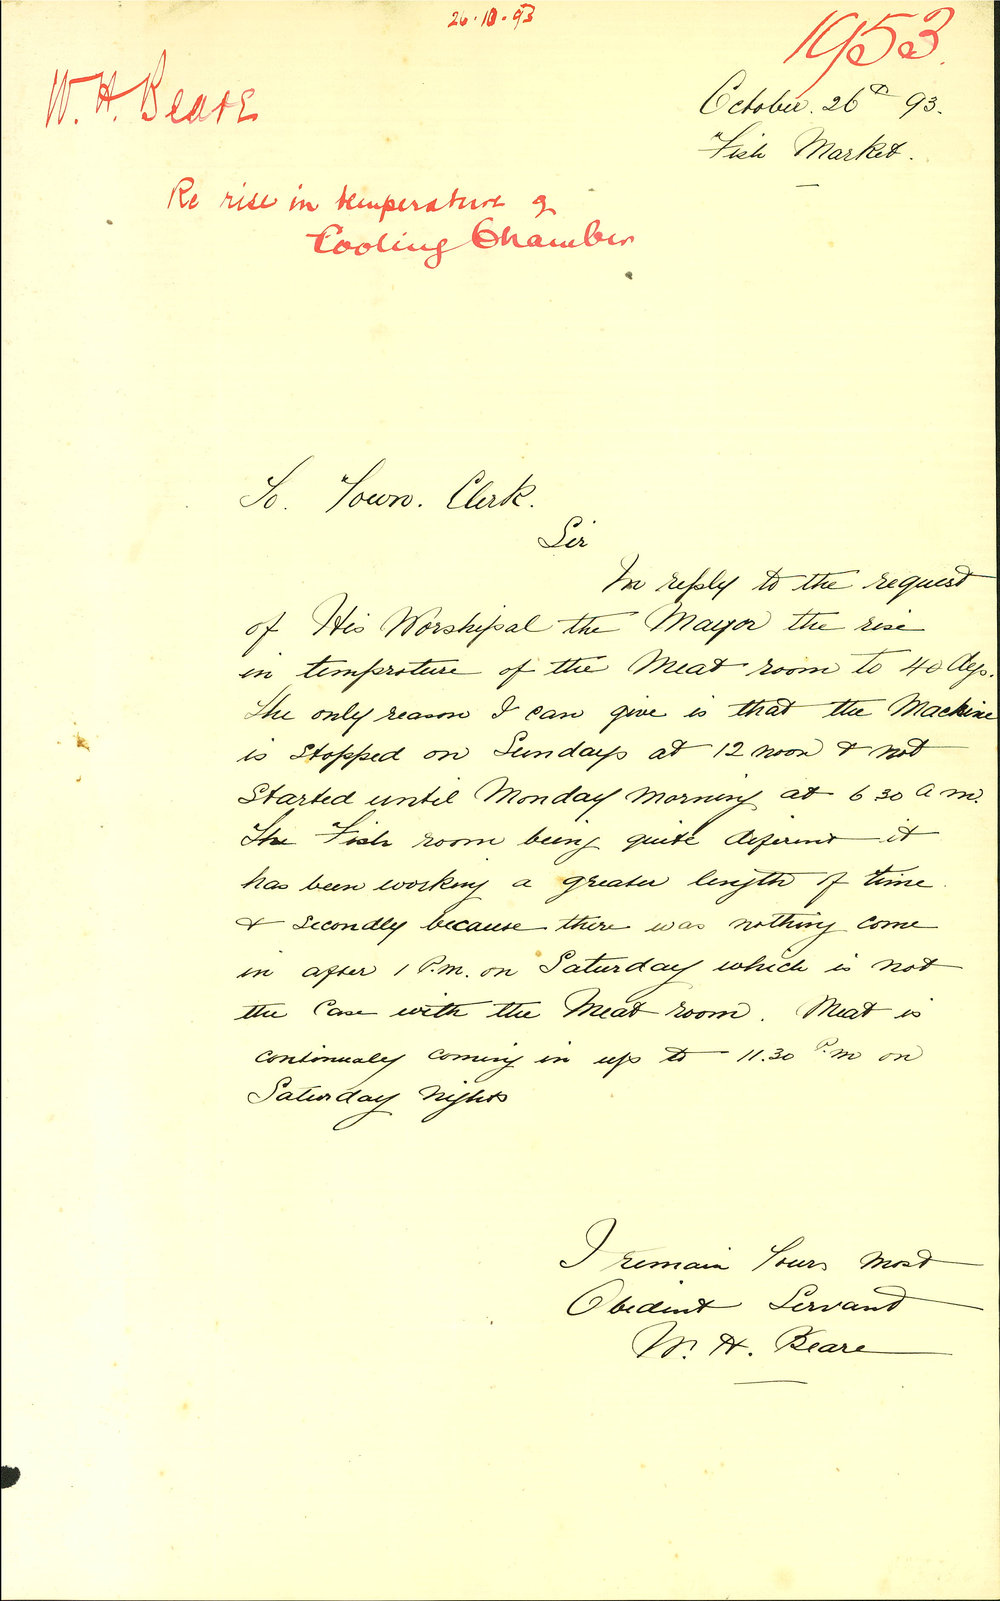 26.10.93
1953.
W. H. Beare
October. 26th 93.
Fish Market.
Re rise in temperature of
Cooling Chamber
To. Town. Clerk.
Sir
In reply to the request
of His Worshipal the Mayor the rise
in temprature of the Meat room to 40 degs.
The only reason I can give is that the Machine
is stopped on Sundays at 12 noon & not
Started until Monday morning at 6 30 a m.
The Fish room being quite diferent it
has been working a greater length of time
& secondly because there was nothing come
in after 1 P.m. on Saturday which is not
the Case with the Meat room. Meat is
continualy coming in up to 11.30 P.m on
Saturday nights
I remain Yours most
Obedint Servant
W. H. Beare